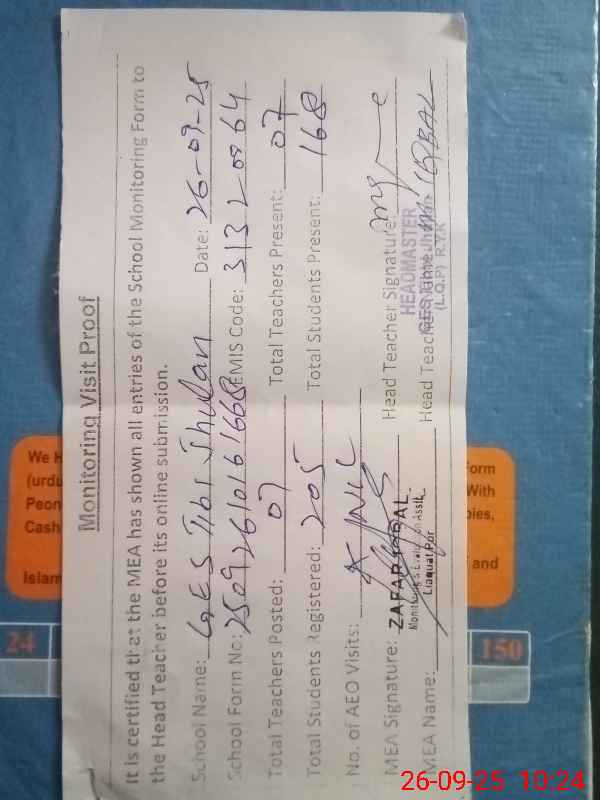 Monitoring Visit Proof
It is certified that the MEA has shown all entries of the School Monitoring Form to
the Head Teacher before its online submission.
School Name: GES Tibi Jhulan Date: 26-09-25
School Form No: 25092610161668 EMIS Code: 31320064
Total Teachers Posted: 07 Total Teachers Present: 07
Total Students Registered: 205 Total Students Present: 168
No. of AEO Visits:
MEA Signature: Head Teacher Signature
ZAFAR IQBAL
Monitoring & Evaluation Assit.
Liaquat Pur
HEADMASTER
GES Tibi Jhullan
(L.Q.P) R.Y.K
MEA Name: Head Teacher Name: IQBAL
We
(urdu
Peon
Cash
Islam
orm
With
pies,
and
24
150
26-09-25 10:24